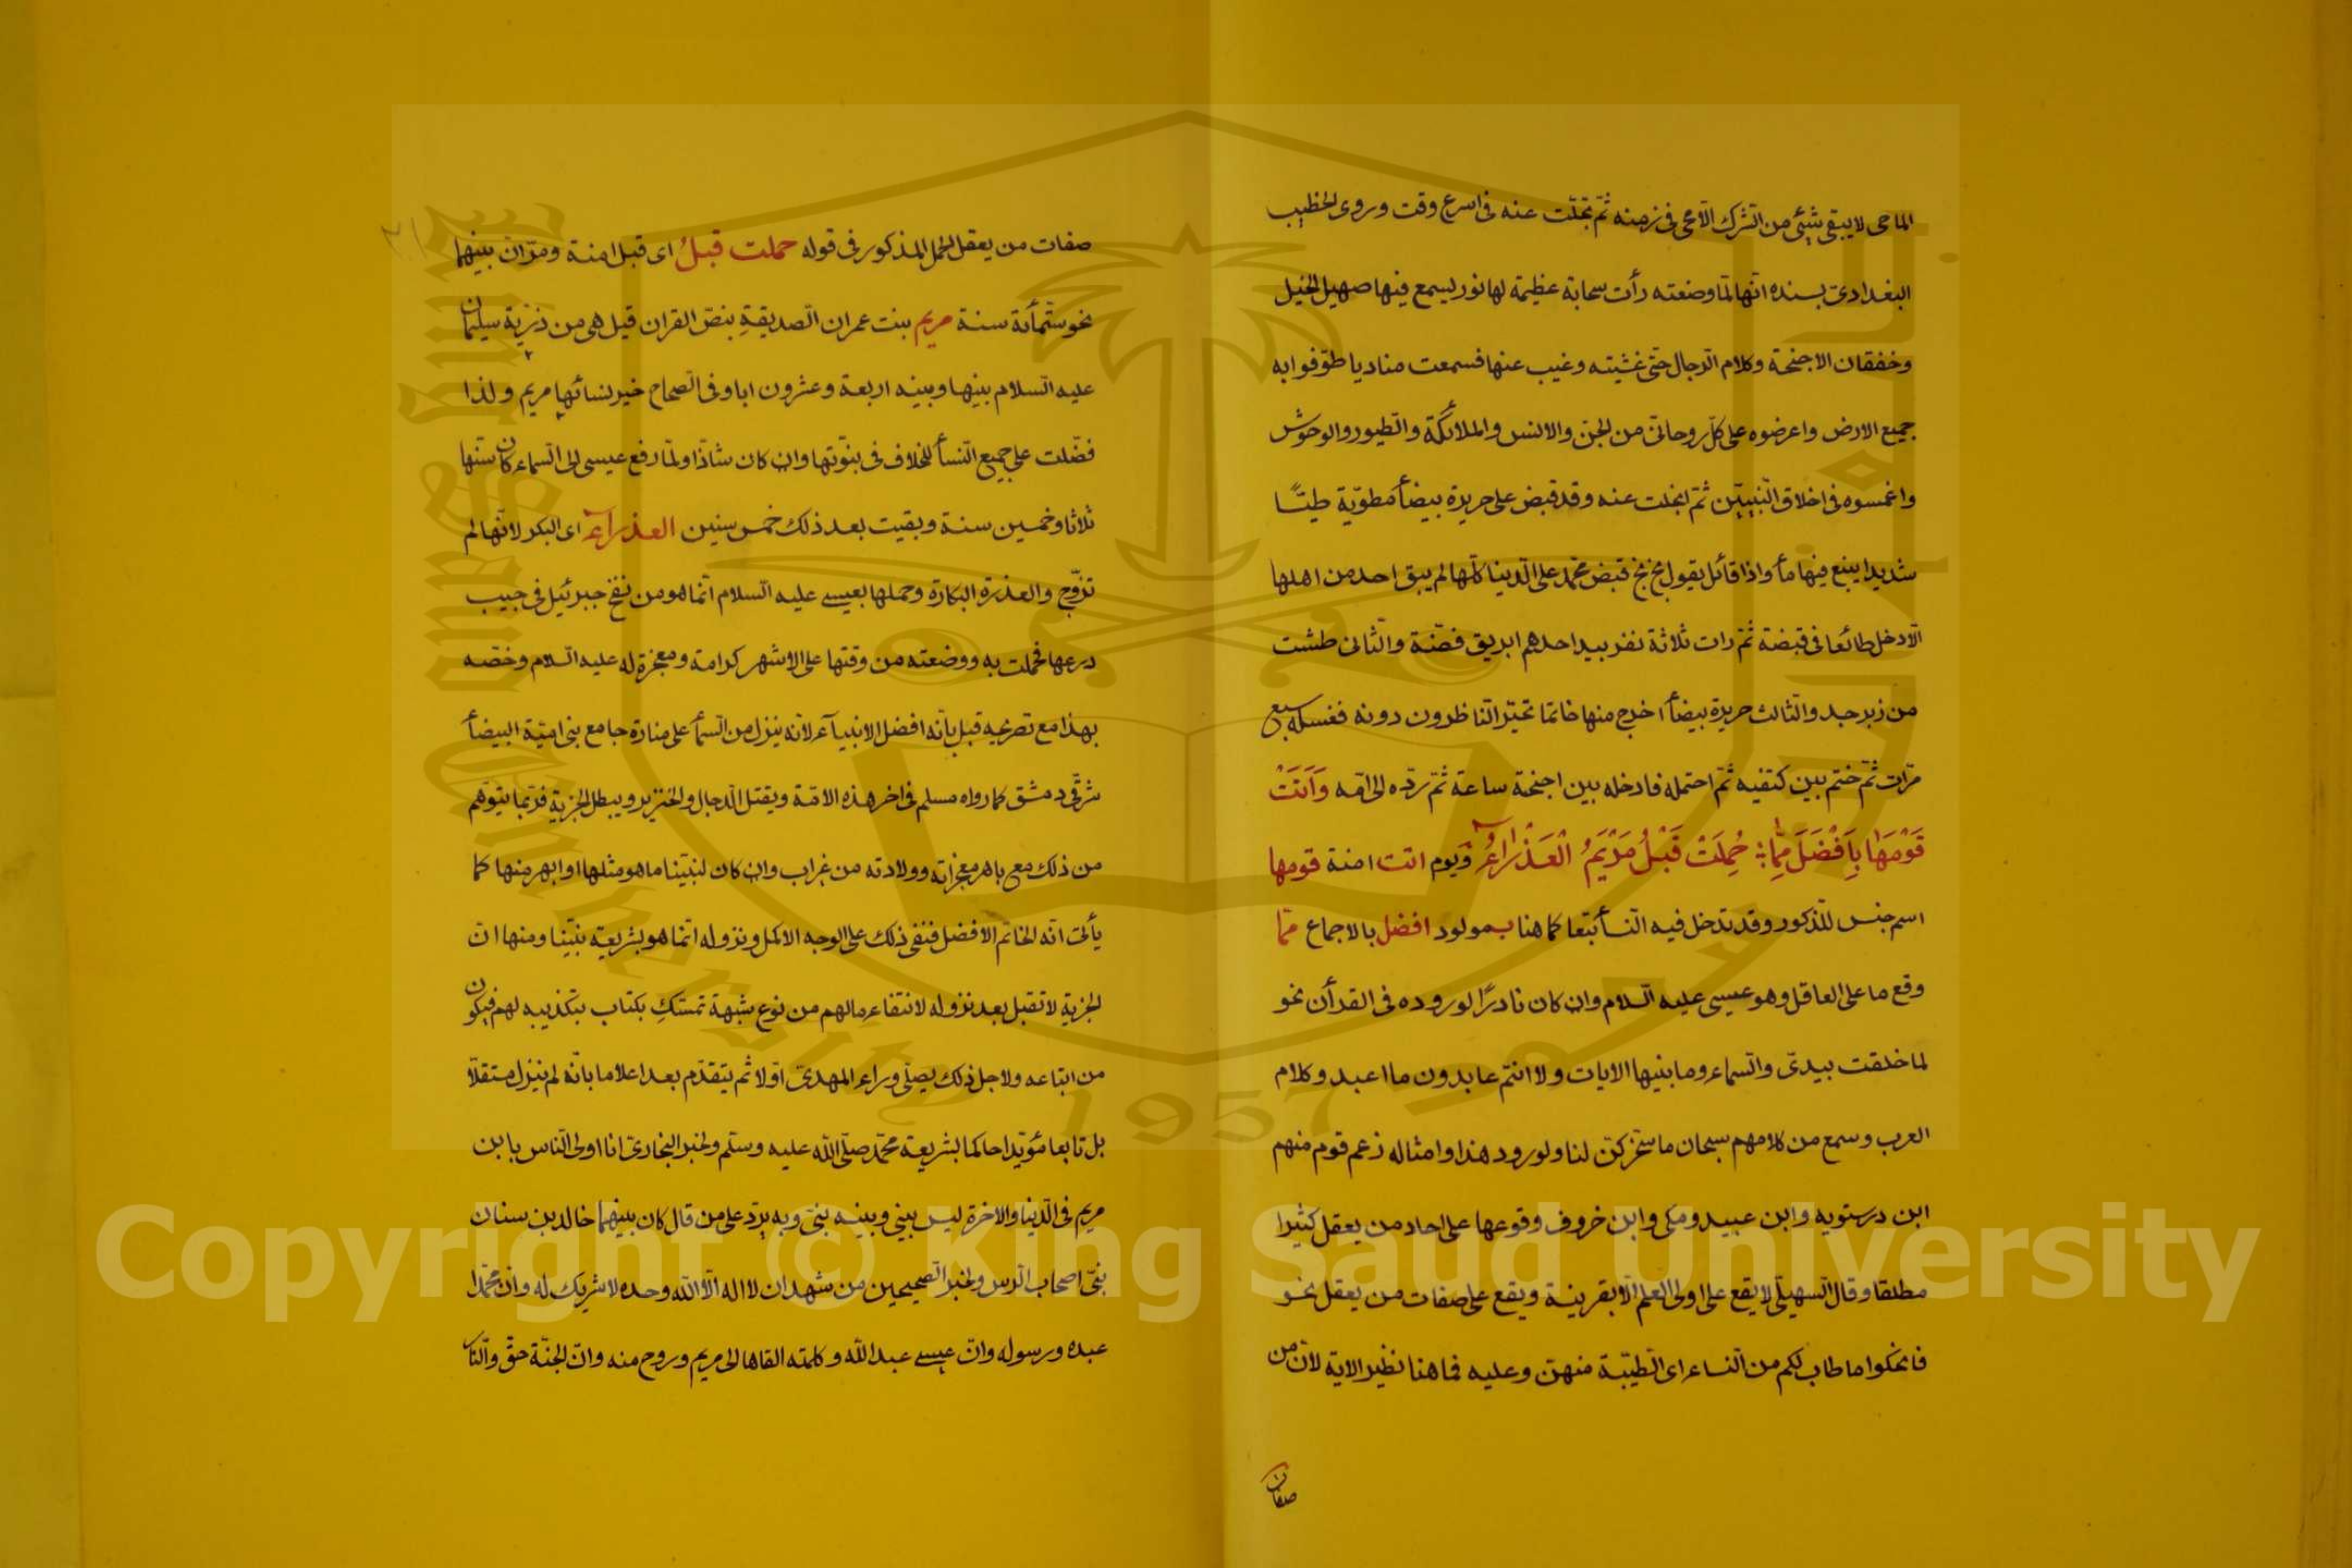 الماحى لا يبقى شيئى من الشرك الا محى فى زمنه ثم تجلت عنه فى اسرع وقت وروى الخطيب
البغدادى بسنده انها لما وضعته رأت سحابة عظيمة لها نور يسمع فيها صهيل الخيل
وخفقان الاجنحة وكلام الرجال حتى غشيته وغيب عنها فسمعت مناديا طوفوا به
جميع الارض واعرضوه على كل روحانى من الجن والانس والملائكة والطيور والوحوش
واغمسوه فى اخلاق النبيين ثم انجلت عنه وقد قبض على حريرة بيضأ مطوية طيّا
شديدا ينبع فيها مأ واذا قائل يقول بخ بخ قبض محمد على الدنيا كلها لم يبق احد من اهلها
الا دخل طائعا فى قبضة ثم رات ثلاثة نفر بيد احدهم ابريق فضة والثانى طشت
من زبرجد والثالث حريرة بيضأ اخرج منها خاتما تحير الناظرون دونه فغسله سبع
مرات ثم ختم بين كتفيه ثم احتمله فادخله بين اجنحة ساعة ثم رده الى امه وَاَتَتْ
قَوْمَهَا بِاَفْضَلَ مِمَّا حُمِلَتْ قَبْلُ مَرْيَمُ الْعَذْرَاءُ ويوم اتت امنة قومها
اسم جنس للذكور وقد تدخل فيه النسأ تبعا كما هنا بمولود افضل بالاجماع مما
وقع ما على العاقل وهو عيسى عليه السلام وان كان نادرًا لوروده فى القرأن نحو
لما خلقت بيدى والسماء وما بنيها الايات ولا انتم عابدون ما اعبد وكلام
العرب وسمع من كلامهم سبحان ما سخركن لنا ولورود هذا وامثاله زعم قوم منهم
ابن درستويه وابن عبيد ومكى وابن خروف وقوعها على احاد من يعقل كثيرا
مطلقا وقال السهيلى لا يقع على اولى العلم الا بقرينة ويقع على صفات من يعقل نحو
فانكحوا ما طاب لكم من النساء اى الطيبة منهن وعليه فما هنا نظير الاية لان من
صفات
صفات من يعقل الحمل المذكور فى قوله حملت قبلُ اى قبل امنة ومر ان بينهما
نحو ستمأئة سنة مريم بنت عمران الصديقةِ بنص القران قيل هى من ذرية سليمان
عليه السلام بينها وبينه اربعة وعشرون ابا وفى الصحاح خير نسائها مريم ولذا
فضلت على جميع النسأ للخلاف فى نبوتها وان كان شاذا ولما رفع عيسى الى السماء كان سنها
ثلاثا وخمسين سنة وبقيت بعد ذلك خمس سنين العذراء اى البكر لانها لم
تزوج والعذرة البكارة وحملها بعيسى عليه السلام انما هو من نفخ جبرئيل فى جيب
درعها فحملت به ووضعته من وقتها على الاشهر كرامة ومعجزة له عليه السلام وخصه
بهذا مع تصريحه قبل بانه افضل الانبيآء لانه ينزل من السمأ على منارة جامع بنى امية البيضأ
شرقى دمشق كما رواه مسلم فى اخر هذه الامة ويقتل الدجال والخنزير ويبطل الجزية فربما يتوهم
من ذلك مع باهر معجزاته وولادته من غير اب وان كان لنبينا ما هو مثلها او ابهر منها كما
يأتى انه الخاتم الافضل فنفى ذلك على الوجه الاكمل ونزوله انما هو بشريعة نبينا ومنها ان
الجزية لا تقبل بعد نزوله لانتفاء مالهم من نوع شبهة تمسكِ بكتاب بتكذيبه لهم فيكون
من اتباعه ولاجل ذلك يصلى وراء المهدى اولا ثم يتقدم بعد اعلاما بانه لم ينزل مستقلا
بل تابعا مؤيدا حاكما بشريعة محمد صلى الله عليه وسلم ولخبر البخارى انا اولى الناس بابن
مريم فى الدنيا والاخرة ليس بينى وبينه نبى وبه يرد على من قال كان بينهما خالد بن سنان
نبى اصحاب الرس ولخبر الصحيحين من شهد ان لا اله الا الله وحده لا شريك له وان محمدا
عبده ورسوله وان عيسى عبد الله وكلمته القاها الى مريم وروح منه وان الجنة حق والنار
Copyright © King Saud University
King Saud University
1957